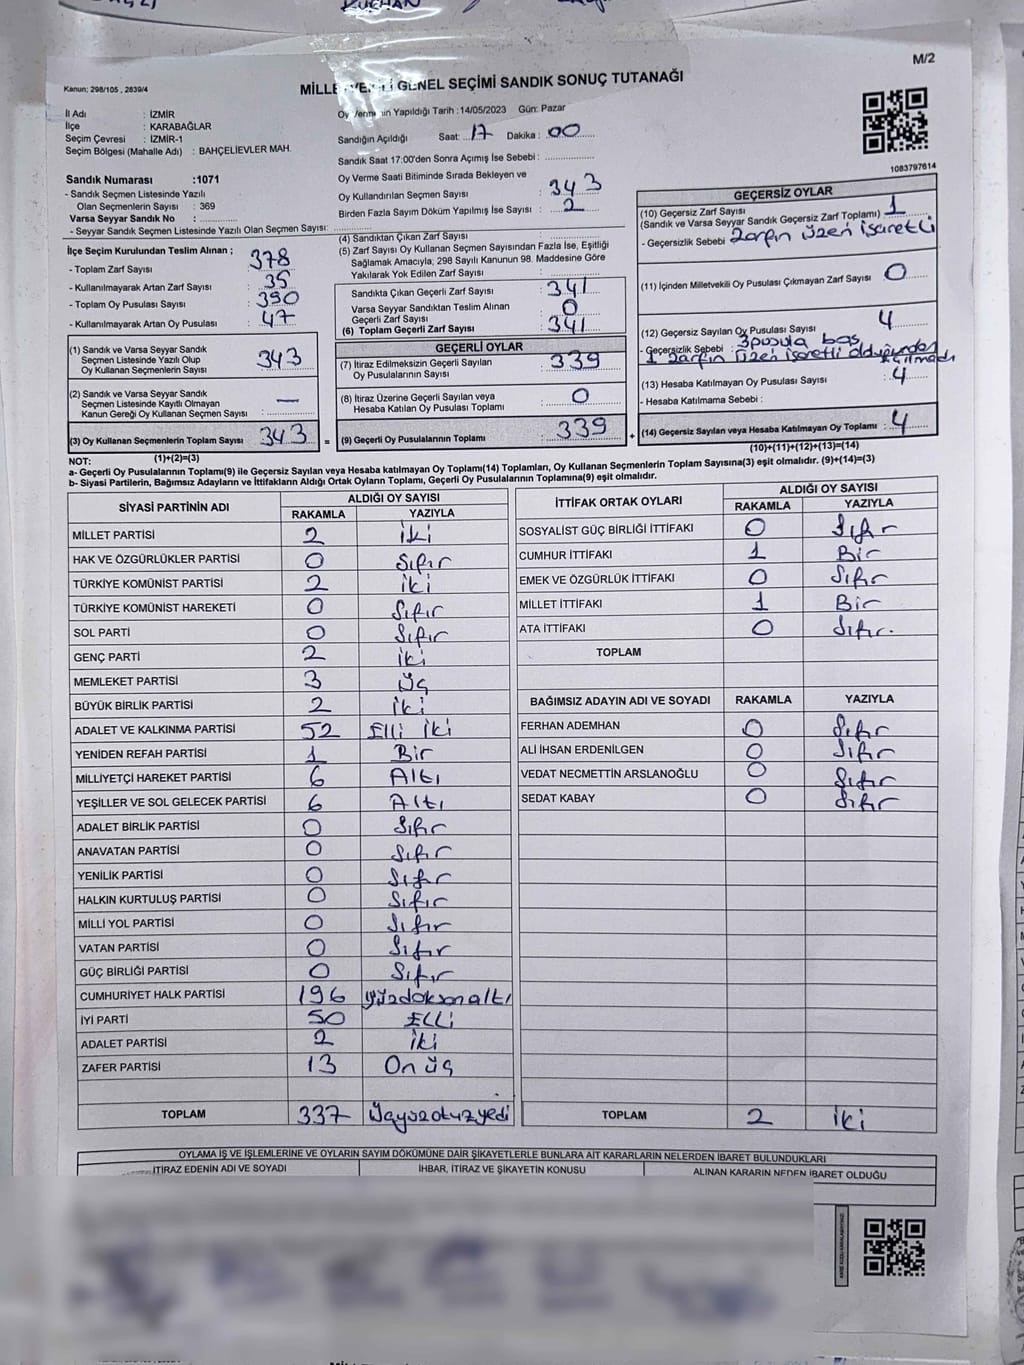 M/2
Kanun; 298/105 , 2839/4
GENEL SEÇİMİ SANDIK SONUÇ TUTANAĞI
İl Adı : İZMİR
İlçe : KARABAĞLAR
Seçim Çevresi : İZMİR-1
Seçim Bölgesi (Mahalle Adı) : BAHÇELİEVLER MAH.
Sandık Numarası :1071
- Sandık Seçmen Listesinde Yazılı
Olan Seçmenlerin Sayısı : 369
Varsa Seyyar Sandık No : ..............
- Seyyar Sandık Seçmen Listesinde Yazılı Olan Seçmen Sayısı: ..............
Yapıldığı Tarih :14/05/2023 Gün: Pazar
Sandığın Açıldığı Saat: 17 Dakika : 00
Sandık Saat 17:00'den Sonra Açımış İse Sebebi : ..............
Oy Verme Saati Bitiminde Sırada Bekleyen ve
Oy Kullandırılan Seçmen Sayısı : 343
Birden Fazla Sayım Döküm Yapılmış İse Sayısı : 2
1083797614
İlçe Seçim Kurulundan Teslim Alınan ;
- Toplam Zarf Sayısı : 378
- Kullanılmayarak Artan Zarf Sayısı : 35
- Toplam Oy Pusulası Sayısı : 390
- Kullanılmayarak Artan Oy Pusulası : 47
(1) Sandık ve Varsa Seyyar Sandık
Seçmen Listesinde Yazılı Olup
Oy Kullanan Seçmenlerin Sayısı : 343
(2) Sandık ve Varsa Seyyar Sandık
Seçmen Listesinde Kayıtlı Olmayan
Kanun Gereği Oy Kullanan Seçmen Sayısı : —
(3) Oy Kullanan Seçmenlerin Toplam Sayısı : 343 =
(4) Sandıktan Çıkan Zarf Sayısı : ..............
(5) Zarf Sayısı Oy Kullanan Seçmen Sayısından Fazla İse, Eşitliği
Sağlamak Amacıyla, 298 Sayılı Kanunun 98. Maddesine Göre
Yakılarak Yok Edilen Zarf Sayısı : ..............
Sandıkta Çıkan Geçerli Zarf Sayısı : 341
Varsa Seyyar Sandıktan Teslim Alınan
Geçerli Zarf Sayısı : 0
(6) Toplam Geçerli Zarf Sayısı : 341
GEÇERLİ OYLAR
(7) İtiraz Edilmeksizin Geçerli Sayılan
Oy Pusulalarının Sayısı : 339
(8) İtiraz Üzerine Geçerli Sayılan veya
Hesaba Katılan Oy Pusulası Toplamı : 0
(9) Geçerli Oy Pusulalarının Toplamı : 339 +
GEÇERSİZ OYLAR
(10) Geçersiz Zarf Sayısı : 1
(Sandık ve Varsa Seyyar Sandık Geçersiz Zarf Toplamı)
- Geçersizlik Sebebi : Zarfın üzeri işaretli
(11) İçinden Milletvekili Oy Pusulası Çıkmayan Zarf Sayısı : 0
(12) Geçersiz Sayılan Oy Pusulası Sayısı : 4
- Geçersizlik Sebebi : 3 pusula boş
1 zarfın üzeri işaretli olduğundan
(13) Hesaba Katılmayan Oy Pusulası Sayısı : 4
- Hesaba Katılmama Sebebi :
(14) Geçersiz Sayılan veya Hesaba Katılmayan Oy Toplamı : 4
NOT: (1)+(2)=(3)
(10)+(11)+(12)+(13)=(14)
a- Geçerli Oy Pusulalarının Toplamı(9) ile Geçersiz Sayılan veya Hesaba katılmayan Oy Toplamı(14) Toplamları, Oy Kullanan Seçmenlerin Toplam Sayısına(3) eşit olmalıdır. (9)+(14)=(3)
b- Siyasi Partilerin, Bağımsız Adayların ve İttifakların Aldığı Ortak Oyların Toplamı, Geçerli Oy Pusulalarının Toplamına(9) eşit olmalıdır.
SİYASİ PARTİNİN ADI ALDIĞI OY SAYISI
RAKAMLA YAZIYLA
MİLLET PARTİSİ 2 iki
HAK VE ÖZGÜRLÜKLER PARTİSİ 0 Sıfır
TÜRKİYE KOMÜNİST PARTİSİ 2 iki
TÜRKİYE KOMÜNİST HAREKETİ 0 Sıfır
SOL PARTİ 0 Sıfır
GENÇ PARTİ 2 iki
MEMLEKET PARTİSİ 3 üç
BÜYÜK BİRLİK PARTİSİ 2 iki
ADALET VE KALKINMA PARTİSİ 52 Elli iki
YENİDEN REFAH PARTİSİ 1 Bir
MİLLİYETÇİ HAREKET PARTİSİ 6 Altı
YEŞİLLER VE SOL GELECEK PARTİSİ 6 Altı
ADALET BİRLİK PARTİSİ 0 Sıfır
ANAVATAN PARTİSİ 0 Sıfır
YENİLİK PARTİSİ 0 Sıfır
HALKIN KURTULUŞ PARTİSİ 0 Sıfır
MİLLİ YOL PARTİSİ 0 Sıfır
VATAN PARTİSİ 0 Sıfır
GÜÇ BİRLİĞİ PARTİSİ 0 Sıfır
CUMHURİYET HALK PARTİSİ 196 yüzdoksanaltı
İYİ PARTİ 50 ELLi
ADALET PARTİSİ 2 iki
ZAFER PARTİSİ 13 On üç
TOPLAM 337 üçyüzotuzyedi
İTTİFAK ORTAK OYLARI ALDIĞI OY SAYISI
RAKAMLA YAZIYLA
SOSYALİST GÜÇ BİRLİĞİ İTTİFAKI 0 Sıfır
CUMHUR İTTİFAKI 1 Bir
EMEK VE ÖZGÜRLÜK İTTİFAKI 0 Sıfır
MİLLET İTTİFAKI 1 Bir
ATA İTTİFAKI 0 Sıfır.
TOPLAM
BAĞIMSIZ ADAYIN ADI VE SOYADI RAKAMLA YAZIYLA
FERHAN ADEMHAN 0 Sıfır
ALİ İHSAN ERDENİLGEN 0 Sıfır
VEDAT NECMETTİN ARSLANOĞLU 0 Sıfır
SEDAT KABAY 0 Sıfır
TOPLAM 2 iki
OYLAMA İŞ VE İŞLEMLERİNE VE OYLARIN SAYIM DÖKÜMÜNE DAİR ŞİKAYETLERLE BUNLARA AİT KARARLARIN NELERDEN İBARET BULUNDUKLARI
İTİRAZ EDENİN ADI VE SOYADI İHBAR, İTİRAZ VE ŞİKAYETİN KONUSU ALINAN KARARIN NEDEN İBARET OLDUĞU